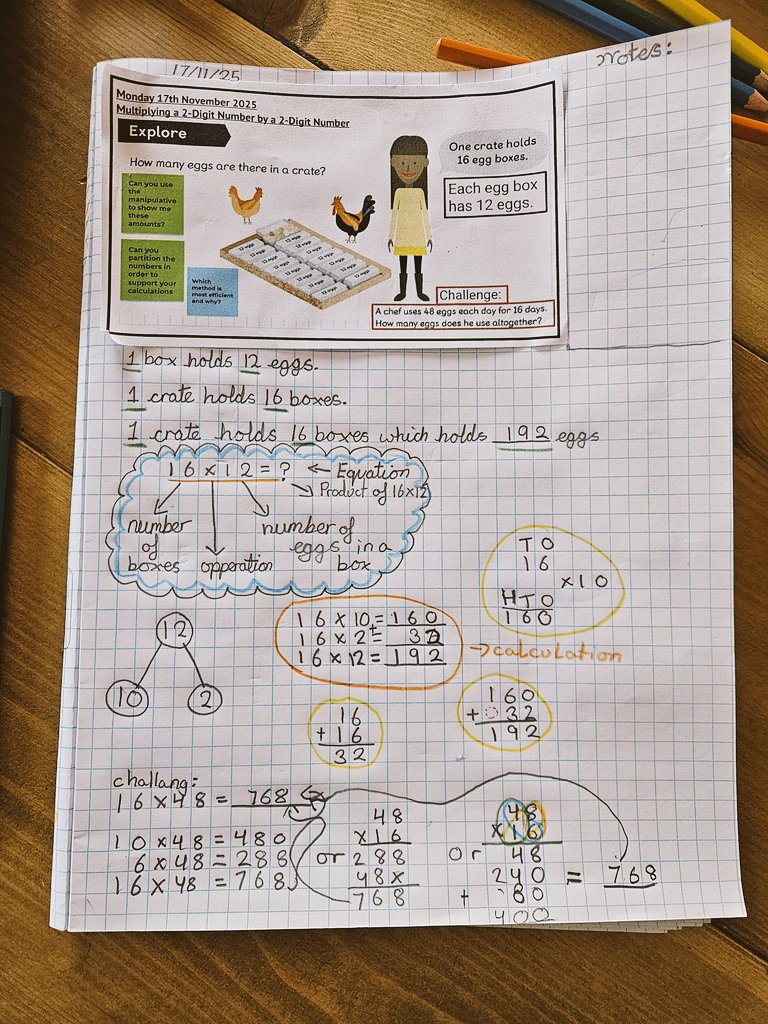 Notes:
17/11/25
Monday 17th November 2025
Multiplying a 2-Digit Number by a 2-Digit Number
Explore
How many eggs are there in a crate?
One crate holds
16 egg boxes.
Each egg box
has 12 eggs.
Can you use
the
manipulative
to show me
these
amounts?
Can you
partition the
numbers in
order to
support your
calculations
Which
method is
most efficient
and why?
12 eggs
12 eggs
12 eggs
12 eggs
12 eggs
12 eggs
12 eggs
12 eggs
12 eggs
12 eggs
12 eggs
12 eggs
Challenge:
A chef uses 48 eggs each day for 16 days.
How many eggs does he use altogether?
1 box holds 12 eggs.
1 crate holds 16 boxes.
1 crate holds 16 boxes which holds 192 eggs
16 × 12 = ? ← Equation
Product of 16×12
number
of
boxes
opperation
number of
eggs in a
box
T O
1 6
×10
H T O
1 6 0
12
10 2
16 × 10 = 160
+
16 × 2 = 32
16 × 12 = 192
→ calculation
16
+ 16
32
160
+ 032
192
challang:
16 × 48 = 768
10 × 48 = 480
6 × 48 = 288
16 × 48 = 768
or
48
×16
288
48×
768
or
48
×16
48
240
+ 80
400
= 768